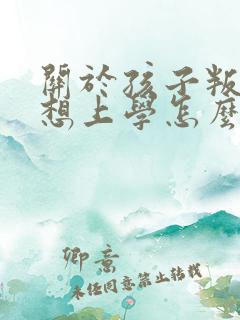 關於孩子叛
想上學怎麼
卿意
未經同意禁止轉載